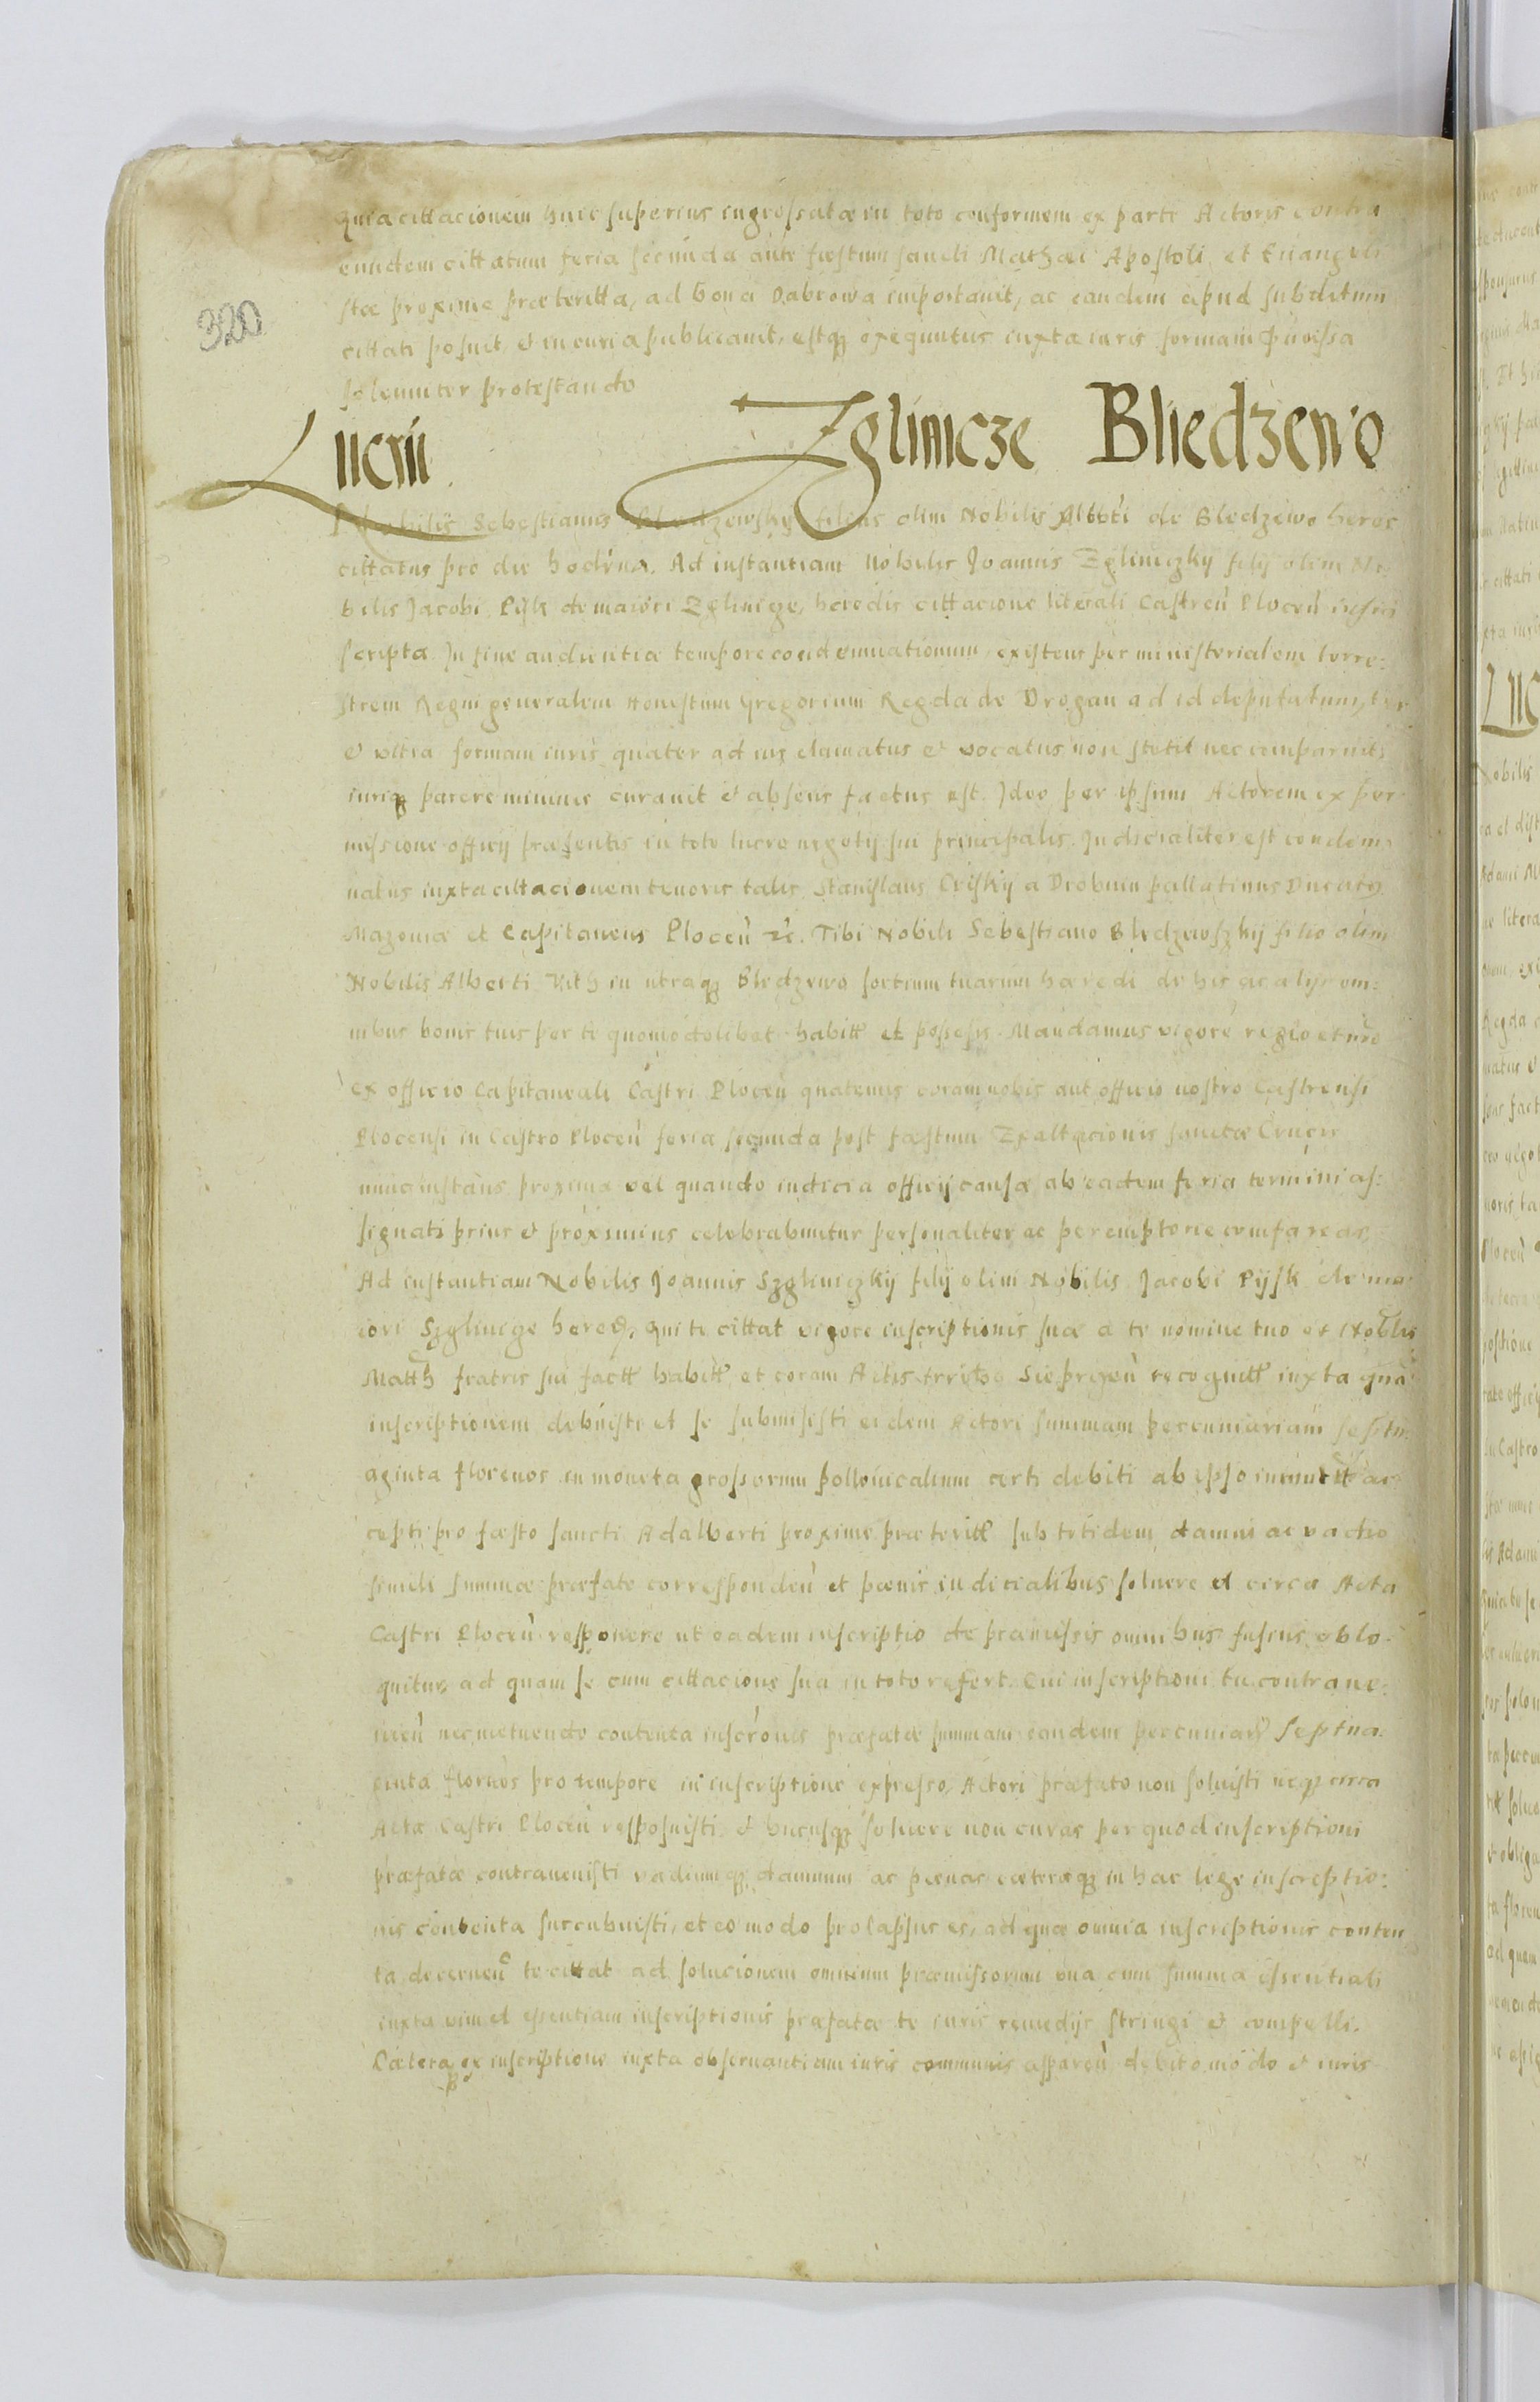 320
quia cittacionem huic superius ingrossatæ in toto conformem ex parte Actoris contra
eundem cittatum feria secunda ante fæstum sancti Mathæi Apostoli et Euangeli
stæ proxime præteritta, ad bona Dabrowa importauit, ac eandem apud subditum
cittati posuit, et in curia publicauit, estq exequutus iuxta iuris formam
solenniter protestando
Lucrū Zglinicze Bliedzewo
Nobilis Sebestianus Bledzewsky filius olim Nobilis Alberti de Bledzewo heres
cittatus pro die hodierna. Ad instantiam Nobilis Joannis Zgliniczky filij olim No
bilis Jacobi Pijsk de maiori Zglinicze, heredis cittacione literali Castreñ Ploceñ infra
scripta. In fine audientiæ tempore condemnationum, existens per ministerialem terre:
strem Regni generalem Honestum Gregorium Regda de Drogan ad id deputatum, ter
et vltra formam iuris quater ad ius clamatus et vocatus non stetit nec comparuit,
iuriq parere minime curauit et absens factus est. Ideo per ipsum Actorem ex per
missione officij præsentis in toto lucro negotij sui principalis Judicialiter est condem
natus iuxta cittacionem tenoris talis Stanislaus Criskij a Drobnin pallatinus Ducatus
Mazoniæ et Capitaneus Ploceñ etc. Tibi Nobili Sebestiano Bledzewszkij filio olim
Nobilis Alberti Vith in utraq Bledzewo sortium tuarum hæredi de his ac alijs om:
nibus bonis tuis per te quomodolibet habitt et possessis. Mandamus vigore regio et nro
ex officio Capitaneali Castri Ploceñ quatenus coram nobis aut officio nostro Castrensi
Plocensi in Castro Ploceñ feria secunda post fæstum Exaltacionis sanctæ Crucis
nunc instans proxima vel quando iudicia officij causæ ab eadem feria termini as:
signati prius et proximius celebrabuntur personaliter ac peremptorie compareas
Ad instantiam Nobilis Joannis Szgliniczkij filij olim Nobilis Jacobi Pijsk de ma
iori Szglinicze hered, qui te cittat vigore inscriptionis suæ a te nomine tuo et Nobilis
Matth fratris sui factt habitt et coram Actis Sieprzceñ recognitt iuxta quā
inscriptionem debuisti et se submisisti eidem Actori summam pecuniariam septu
aginta florenos in moneta grossorum pollonicalium certi debiti ab ipso ac
cepti pro fæsto sancti Adalberti proxime præteritt sub totidem damni ac vadio
simili summæ præfate correspondeñ et pœnis iudicialibus soluere et circa Acta
Castri Ploceñ respponere ut eadem inscriptio de præmissis omnibus fusius oblo
quitur, ad quam se cum cittacione sua in toto refert. Cui inscriptioni tu contraue:
nieñ nec metuendo contenta inscrônis præfatæ summam eandem pecuniar Septua
ginta flornos pro tempore in inscriptione expresso, Actori præfato non soluisti neq circa
Acta Castri Ploceñ ressposuisti, et hucusq soluere non curas per quod inscriptioni
præfatæ contrauenisti vadiumq damnum ac pœnas cæteraq in hac lege inscriptio:
nis contenta succubuisti, et eo modo prolapsus es, ad quæ omnia inscriptionis conten
ta decerneñ te cittat ad solucionem omnium præmissorum vna cum summa essentiali
iuxta vim et essentiam inscriptionis præfatæ te iuris remedijs stringi et compelli.
Cætera ex inscriptione iuxta obseruantiam iuris communis appareñ debito modo et iuris